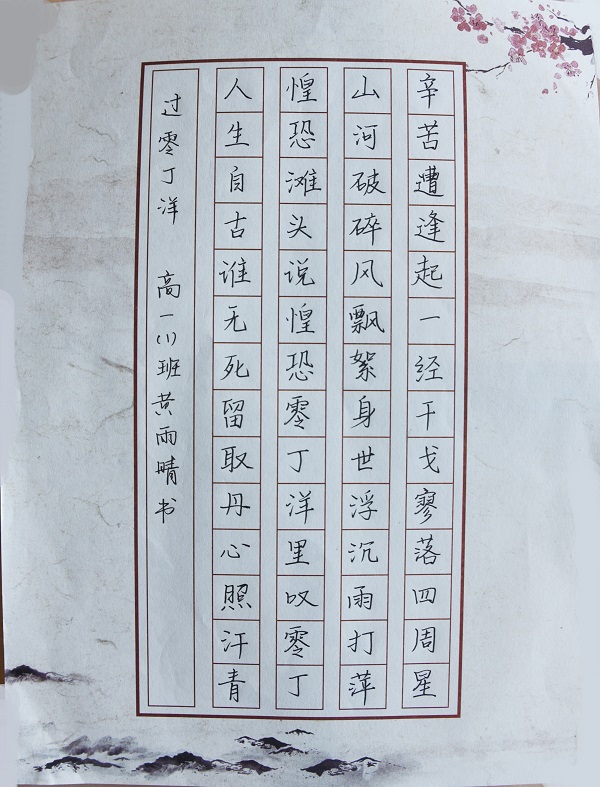 辛苦遭逢起一经干戈寥落四周星
山河破碎风飘絮身世浮沉雨打萍
惶恐滩头说惶恐零丁洋里叹零丁
人生自古谁无死留取丹心照汗青
过零丁洋 高一(1)班黄雨晴书